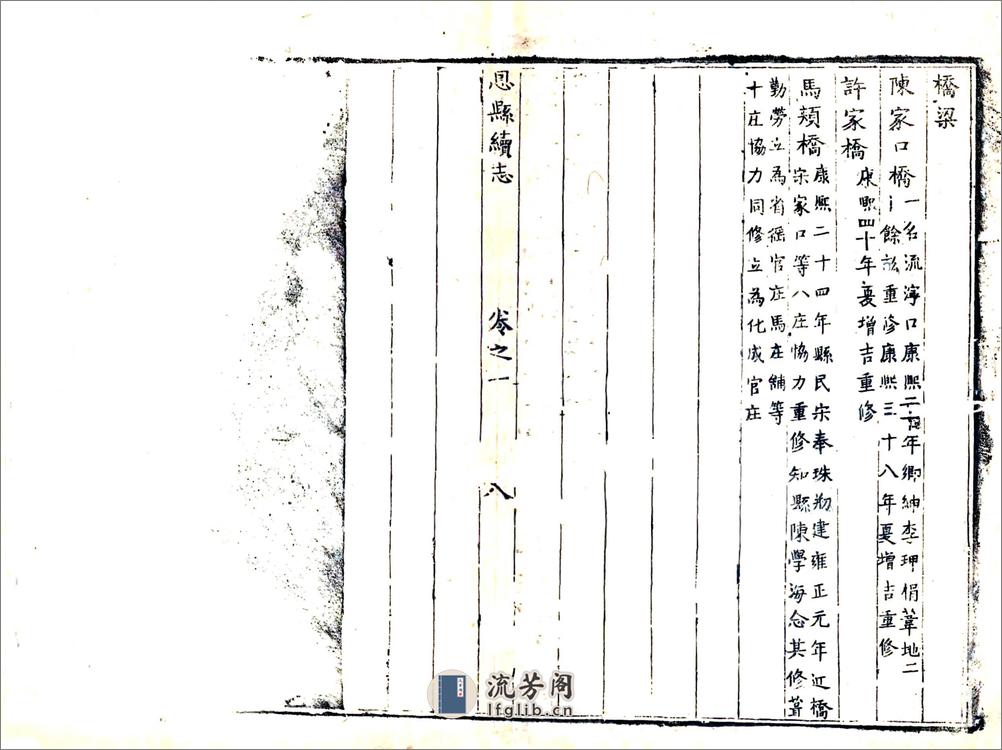 橋梁
陳家口橋
一名流濘口康熙二十年鄉紳李玾俏葦地二
餘畝重修康熙三十八年夏增吉重修
許家橋
康熙四十年夏增吉重修
馬頰橋
康熙二十四年縣民宋奉珠剏建雍正元年近橋
宋家口等八庄協力重修知縣陳學海念其修葺
勤勞立為省徭官庄馬庄舖等
十庄協力同修立為化成官庄
恩縣續志
卷之一
八
流芳阁
lfglib.cn